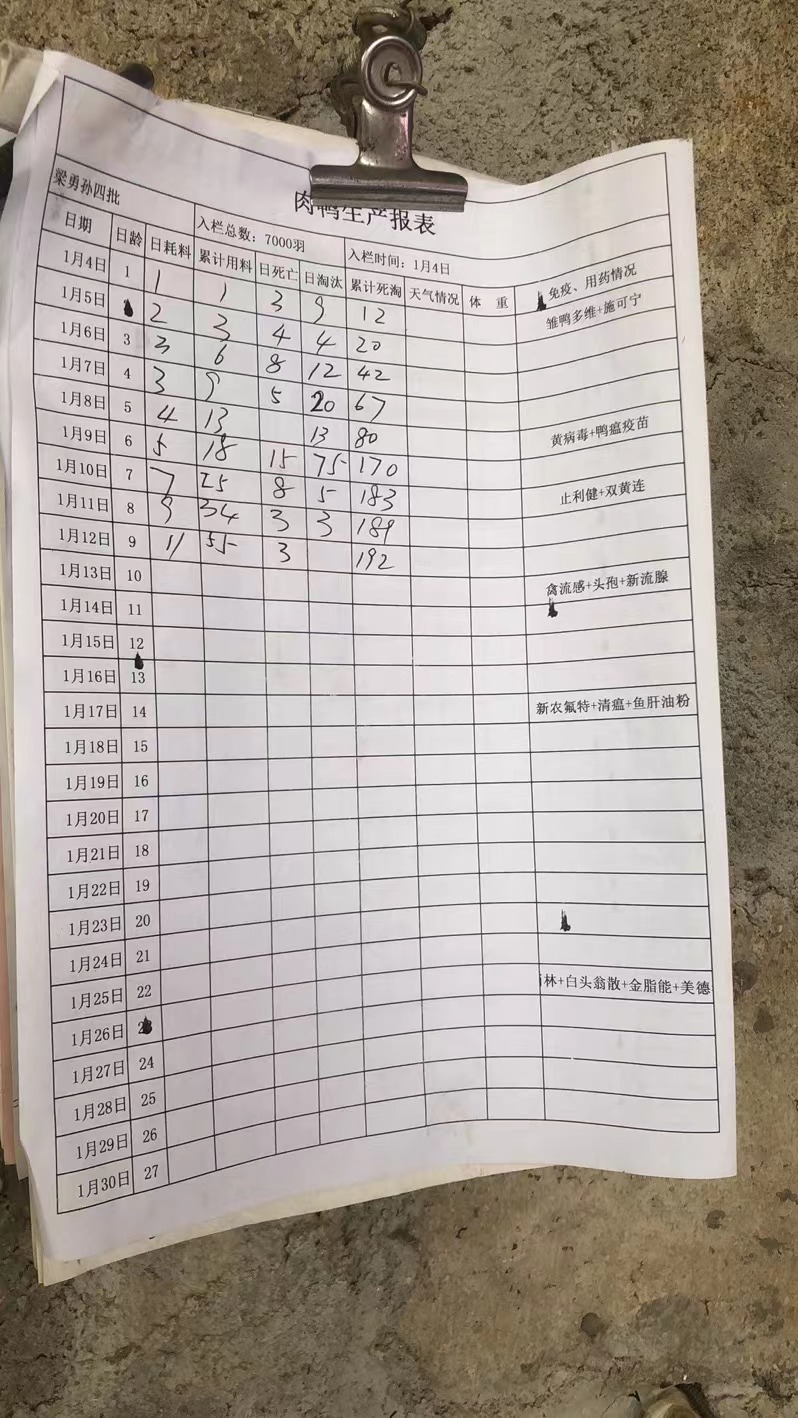 肉鸭生产报表
梁勇孙四批 入栏总数：7000羽 入栏时间：1月4日
日期 日龄 日耗料 累计用料 日死亡 日淘汰 累计死淘 天气情况 体 重 免疫、用药情况
1月4日 1 1 1 3 9 12 雏鸭多维+施可宁
1月5日 2 3 4 4 20
1月6日 3 3 6 8 12 42
1月7日 4 3 9 5 20 67
1月8日 5 4 13 13 80 黄病毒+鸭瘟疫苗
1月9日 6 5 18 15 75 170
1月10日 7 7 25 8 5 183 止利健+双黄连
1月11日 8 9 34 3 3 189
1月12日 9 11 55 3 192
1月13日 10 禽流感+头孢+新流腺
1月14日 11
1月15日 12
1月16日 13
1月17日 14 新农氟特+清瘟+鱼肝油粉
1月18日 15
1月19日 16
1月20日 17
1月21日 18
1月22日 19
1月23日 20
1月24日 21
1月25日 22 林+白头翁散+金脂能+美德
1月26日
1月27日 24
1月28日 25
1月29日 26
1月30日 27